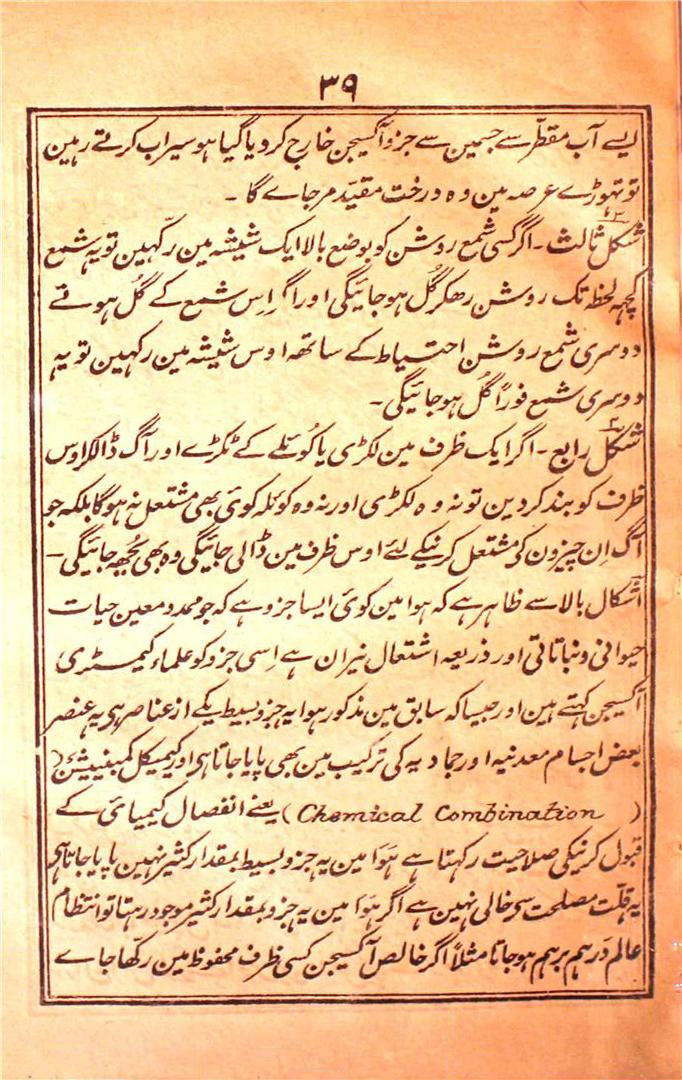 ۳۹
ایسے آب مقطّر سے جسمین سے جزو آکسیجن خارج کر دیا گیا ہو سیراب کرتے رہین
تو تہوڑے عرصہ مین وہ درخت مقیّد مر جاے گا ۔
شکل ثالث ۔ اگر کسی شمع روشن کو بوضع بالا ایک شیشہ مین رکّہین تو یہ شمع
کچہہ لحظہ تک روشن رہکر گُل ہو جائیگی اور اگر اِس شمع کے گُل ہوتے
دوسری شمع روشن احتیاط کے ساتھہ اوس شیشہ مین رکہین تو یہ
دوسری شمع فوراً گُل ہو جائیگی ۔
شکل رابع ۔ اگر ایک ظرف مین لکڑی یا کوُئلے کے ٹکڑے اور آگ ڈالکر اوس
ظرف کو بند کر دین تو نہ وہ لکڑی اور نہ وہ کوئلہ کوئی بھی مشتعل نہ ہوگا بلکہ جو
آگ اِن چیزون کی مشتعل کرنیکے لئے اوس ظرف مین ڈالی جائیگی وہ بھی بُجھہ جائیگی ۔
اشکال بالا سے ظاہر ہے کہ ہوا مین کوئی ایسا جزو ہے کہ جو ممد و معین حیات
حیوانی و نباتاتی اور ذریعہ اشتعال نیران ہے اِسی جزو کو علماء کیمسٹری
آکسیجن کہتے ہین اور جیسا کہ سابق مین مذکور ہوا یہ جزو بسیط یکے از عناصر ہی یہ عنصر
بعض اجسام معدنیہ اور جمادیہ کی ترکیب مین بھی پایا جاتا ہی اور کیمیکل کمبینیشن (
( Chemical Combination ) یعنے انفصال کیمیائی کے
قبول کرنیکی صلاحیت رکہتا ہے ہَوَا مین یہ جزو بسیط بمقدار کثیر نہین پایا جاتا ہی
یہ قلّت مصلحت سی خالی نہین ہے اگر ہَوَا مین یہ جزو بمقدار کثیر موجود رہتا تو انتظام
عالم دَرہم برہم ہو جاتا مثلاً اگر خالص آکسیجن کسی ظرف محفوظ مین رکّھا جاے